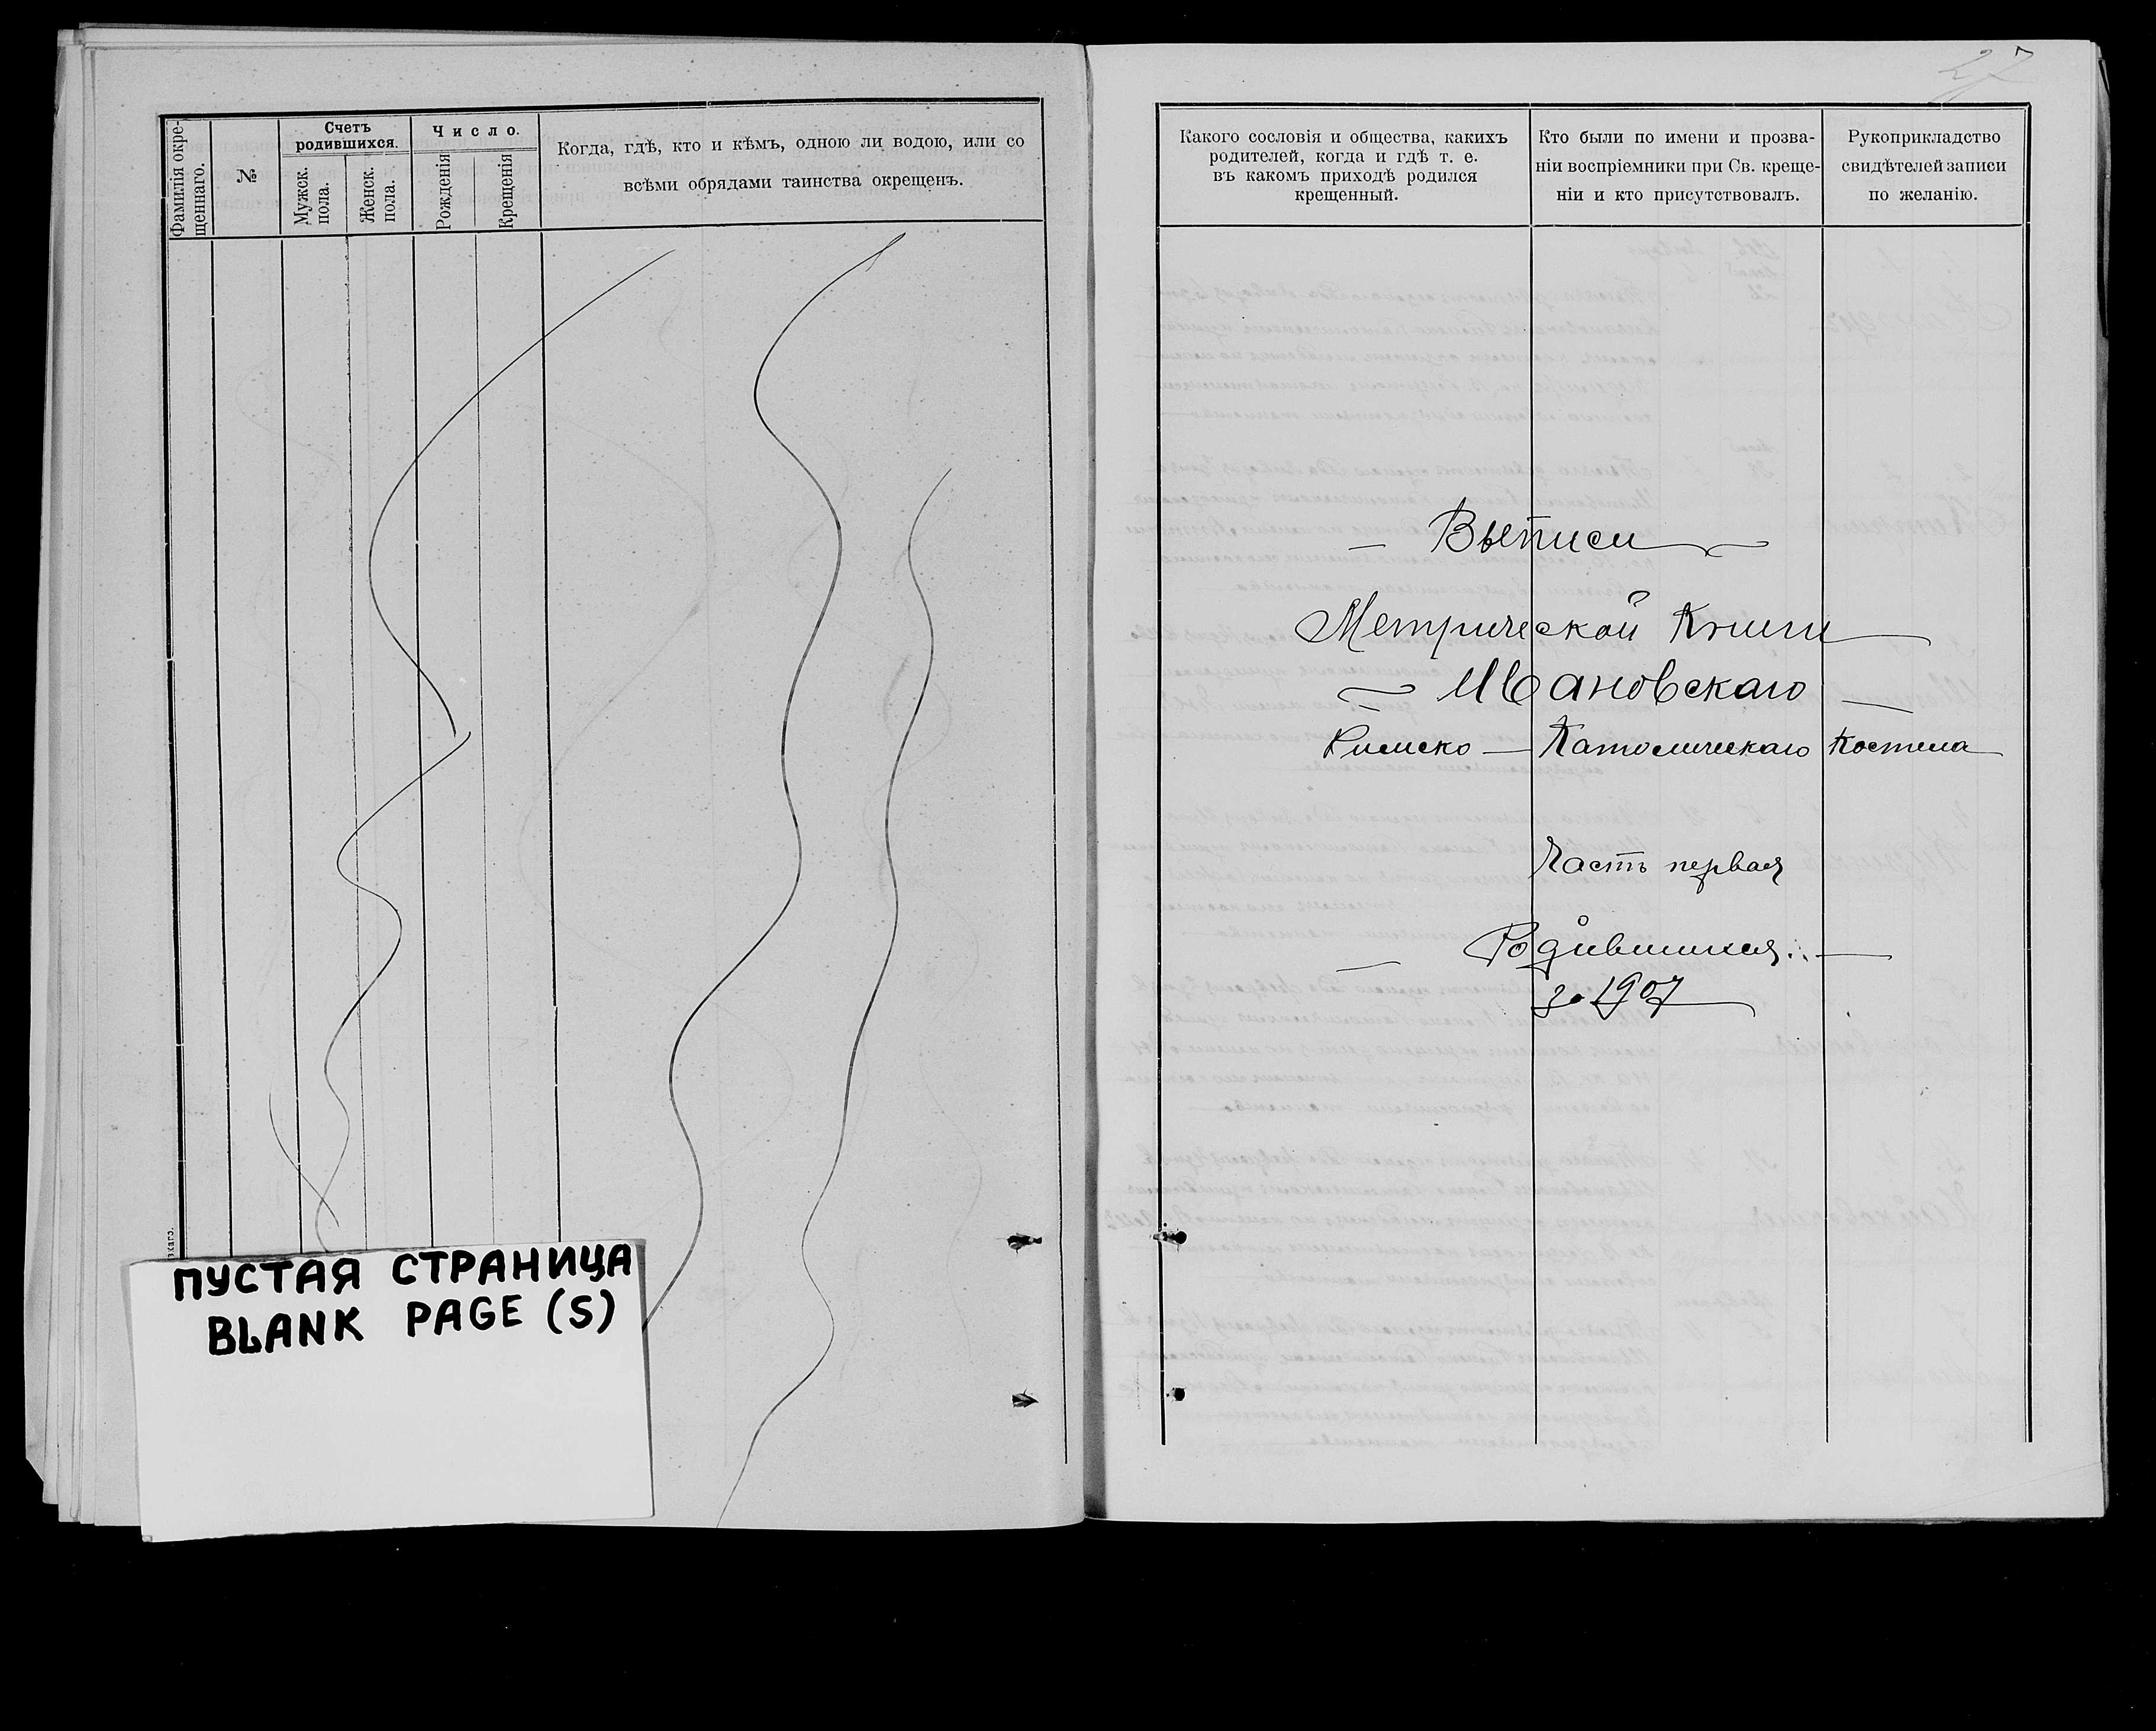 Фамилія окре-
щеннаго.
№
Счетъ
родившихся.
Мужск.
пола.
Женск.
пола.
Число.
Рожденія
Крещенія
Когда, гдѣ, кто и кѣмъ, одною ли водою, или со
всѣми обрядами таинства окрещенъ.
ПУСТАЯ СТРАНИЦА
BLANK PAGE (S)
27
Какого сословія и общества, какихъ
родителей, когда и гдѣ т. е.
въ какомъ приходѣ родился
крещенный.
Кто были по имени и прозва-
ніи воспріемники при Св. креще-
ніи и кто присутствовалъ.
Рукоприкладство
свидѣтелей записи
по желанію.
— Выписи —
Метрической Книги —
— Ивановскаго —
Римско — Католическаго Костела
Часть первая
— Родившихся. —
за 1907